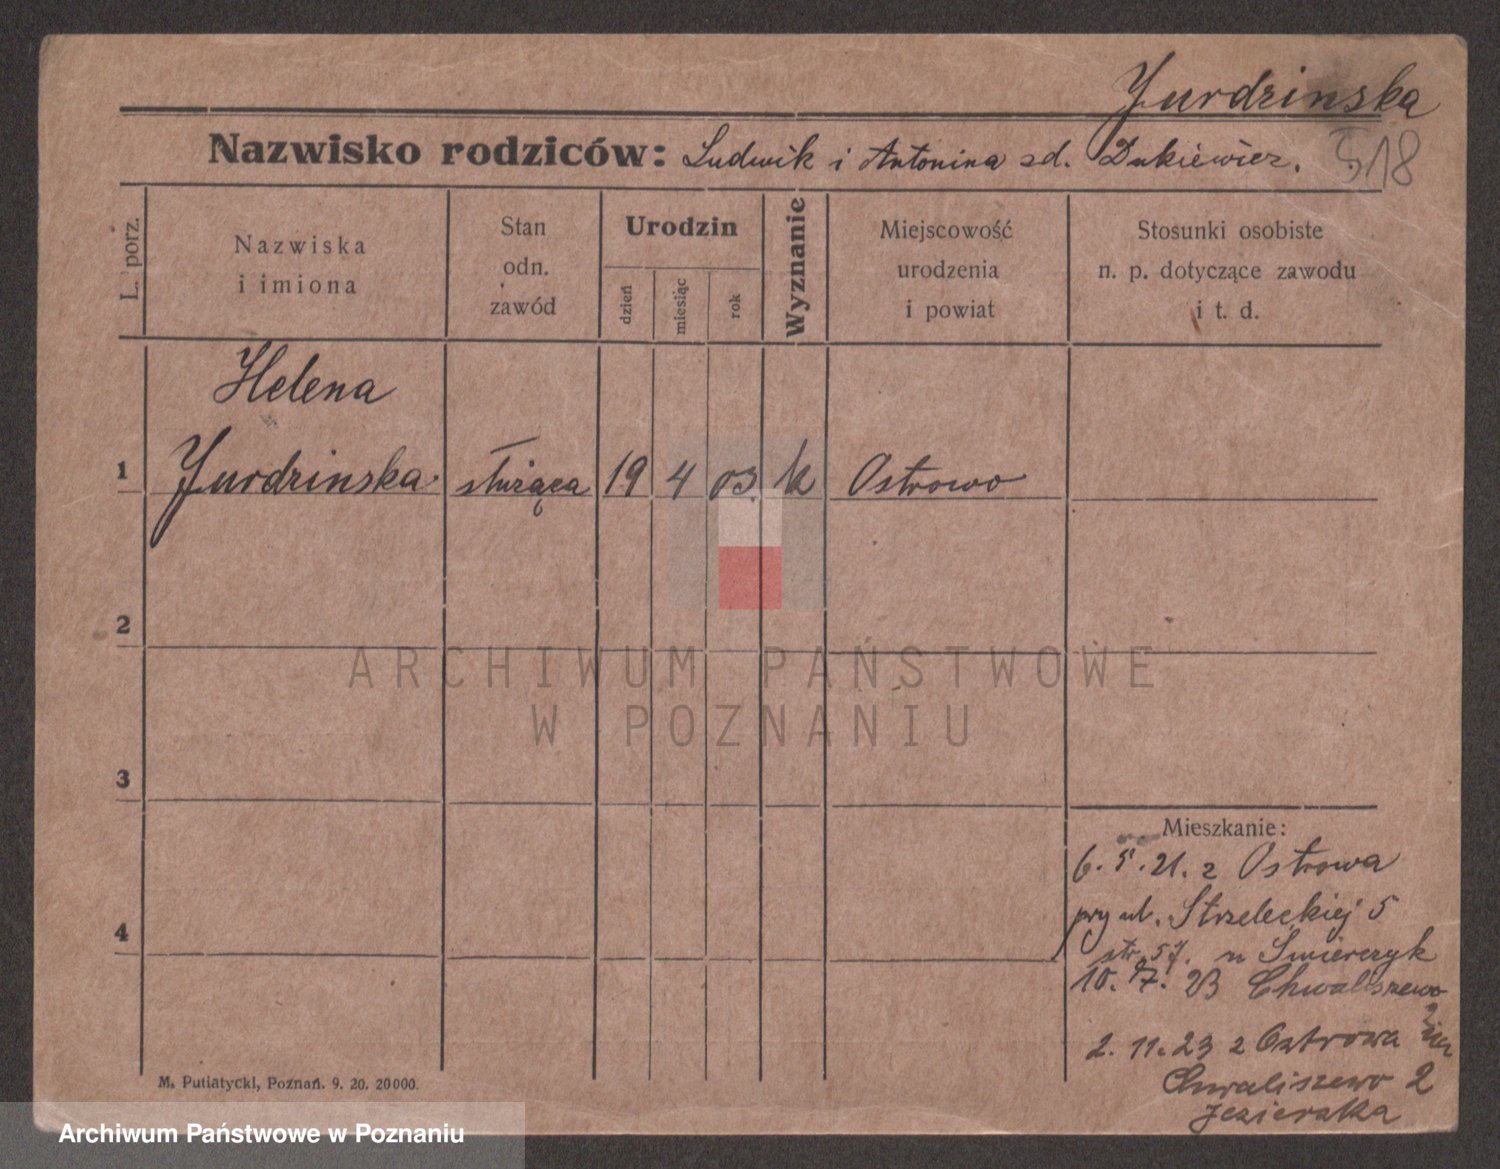 Jurdzinska
Nazwisko rodziców: Ludwik i Antonina zd. Dukiewicz.
518
L. porz.
Nazwiska
i imiona
Stan
odn.
zawód
Urodzin
dzień
miesiąc
rok
Wyznanie
Miejscowość
urodzenia
i powiat
Stosunki osobiste
n. p. dotyczące zawodu
i t. d.
Helena
1 Jurdzinska służąca 19 4 03. k Ostrowo
2
ARCHIWUM PAŃSTWOWE
W POZNANIU
3
Mieszkanie:
6. 5. 21. z Ostrowa
przy ul. Strzeleckiej 5
4
str. 57. u Świerczyk
10. 7. 23 Chwaliszewo
2.
2. 11. 23 z Ostrowa na
Chwaliszewo 2
Jezierska
M. Putiatycki, Poznań. 9. 20. 20000.
Archiwum Państwowe w Poznaniu